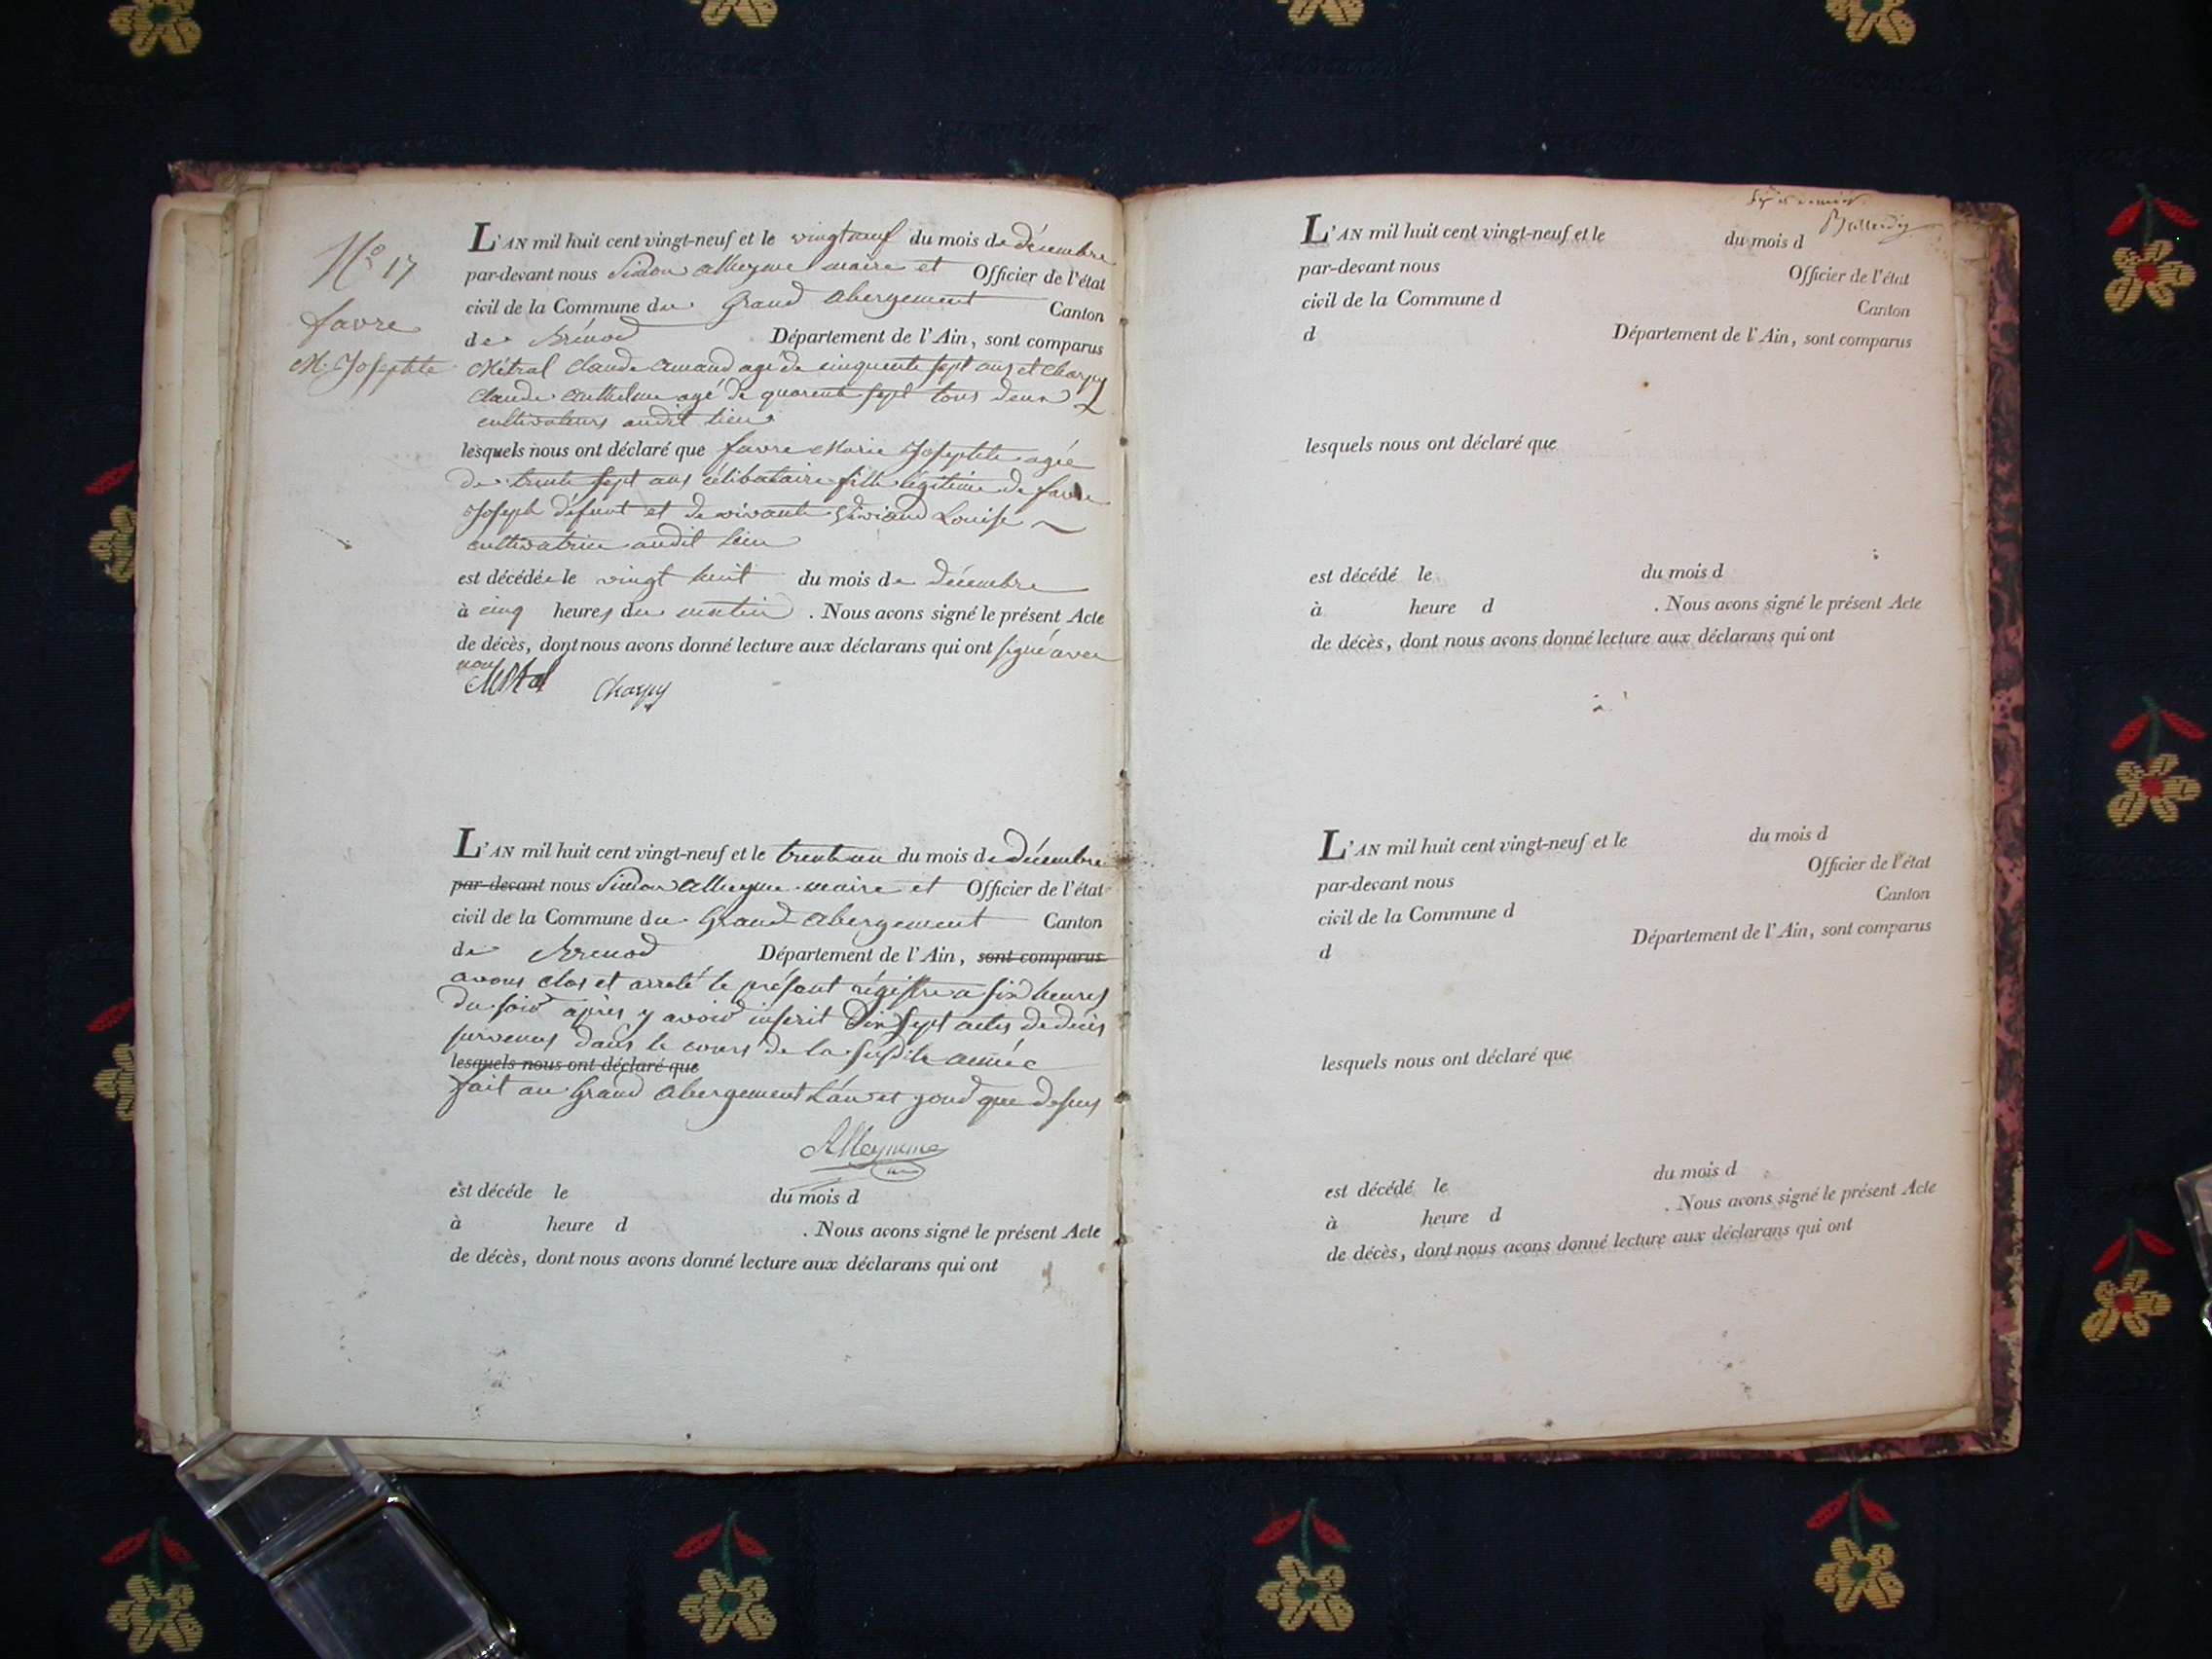 N.º 17
favre
M. Josephte
L'AN mil huit cent vingt-neuf et le vingt neuf du mois de décembre
par-devant nous Simon Alleyme maire et Officier de l'état
civil de la Commune du Grand Abergement Canton
de Brénod Département de l'Ain, sont comparus
Métral Claude Amand agé de cinquente sept ans et Charpy
Claude Anthelme agé de quarente sept tous deux
cultivateurs audit lieu
lesquels nous ont déclaré que favre Marie Josephte agée
de trente sept ans célibataire fille légitime de favre
Joseph défunt et de vivante Louise
cultivatrice audit lieu
est décédée le vingt huit du mois de décembre
à cinq heures du matin . Nous avons signé le présent Acte
de décès, dont nous avons donné lecture aux déclarans qui ont signé avec
nous
Charpy
L'AN mil huit cent vingt-neuf et le trente un du mois de décembre
par-devant nous Simon Alleyme maire et Officier de l'état
civil de la Commune du Grand Abergement Canton
de Brenod Département de l'Ain, sont comparus
avons clos et arreté le présent régistre a six heures
du soir après y avoir inscrit Dix sept actes de décès
survenus dans le cours de la susdite année
lesquels nous ont déclaré que
fait au Grand Abergement L'an et jour que dessus
Alleymme
est décédé le du mois d
à heure d . Nous avons signé le présent Acte
de décès, dont nous avons donné lecture aux déclarans qui ont
L'AN mil huit cent vingt-neuf et le du mois d
par-devant nous Officier de l'état
civil de la Commune d Canton
d Département de l'Ain, sont comparus
lesquels nous ont déclaré que
est décédé le du mois d
à heure d . Nous avons signé le présent Acte
de décès, dont nous avons donné lecture aux déclarans qui ont
L'AN mil huit cent vingt-neuf et le du mois d
par-devant nous Officier de l'état
civil de la Commune d Canton
d Département de l'Ain, sont comparus
lesquels nous ont déclaré que
est décédé le du mois d
à heure d . Nous avons signé le présent Acte
de décès, dont nous avons donné lecture aux déclarans qui ont